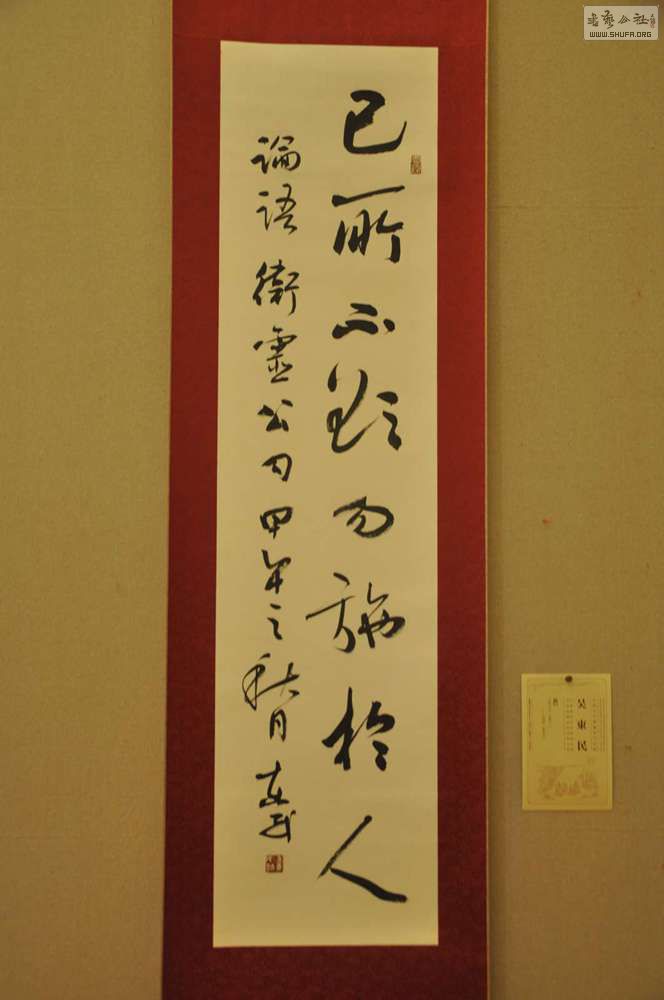 己所不欲勿施於人
論語衛靈公句甲午之秋月東民
吴東民
书艺公社
WWW.SHUFA.ORG